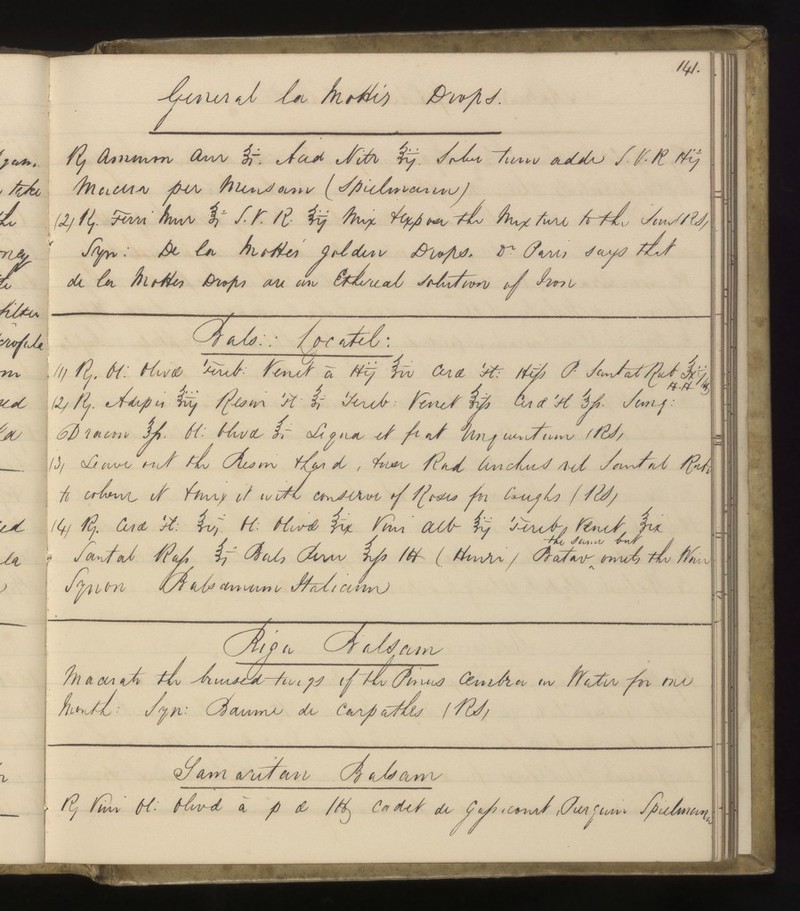 141.
General la Motte's Drops.
℞ Ammon Aur ʒi. Acid Nitr ℥ij. Solve tum adde S.V.R ℔ij
Macera per Mensam (Spielmann)
(2) ℞. Ferri Mur ʒj S.V.R. ℥ij Mix & expose the Mixture to the Sun (RS)
Syn: De la Motte's golden Drops. Dr Paris says that
de la Mottes Drops are an Ethereal Solution of Iron
Bals:: Locatel:
(1) ℞. Ol: Olivæ Tereb: Venet ā ℔ij Ceræ Fl: ℔fs P. Santal Rub
(2) ℞. Adipis Resin Fl Tereb: Venet Ceræ Fl ℥fs. Sang:
Dracon ℥fs. Ol: Olivæ ℥i Liqua et fiat Unguentum (RS)
(3) Leave out the Resin & lard, & use Rad Anchus vel Santal Rub
to colour it & mix it with conserve of Roses for Coughs (RS)
(4) ℞. Ceræ Fl: Ol: Olivæ ℥ix Vini Alb Tereb, Venet, ℥ix
Santal Ras, Bals Peru (Henri) Batav the same but omits the Wine
Synon Balsamum Italicum
Riga Balsam
Macerate the bruised twigs of the Pinus Cembra in Water for one
Month: Syn: Baume de Carpathes (RS)
Samaritan Balsam
℞ Vini Ol: Olivæ ā p æ Cadet de Gassicourt, Spielmann